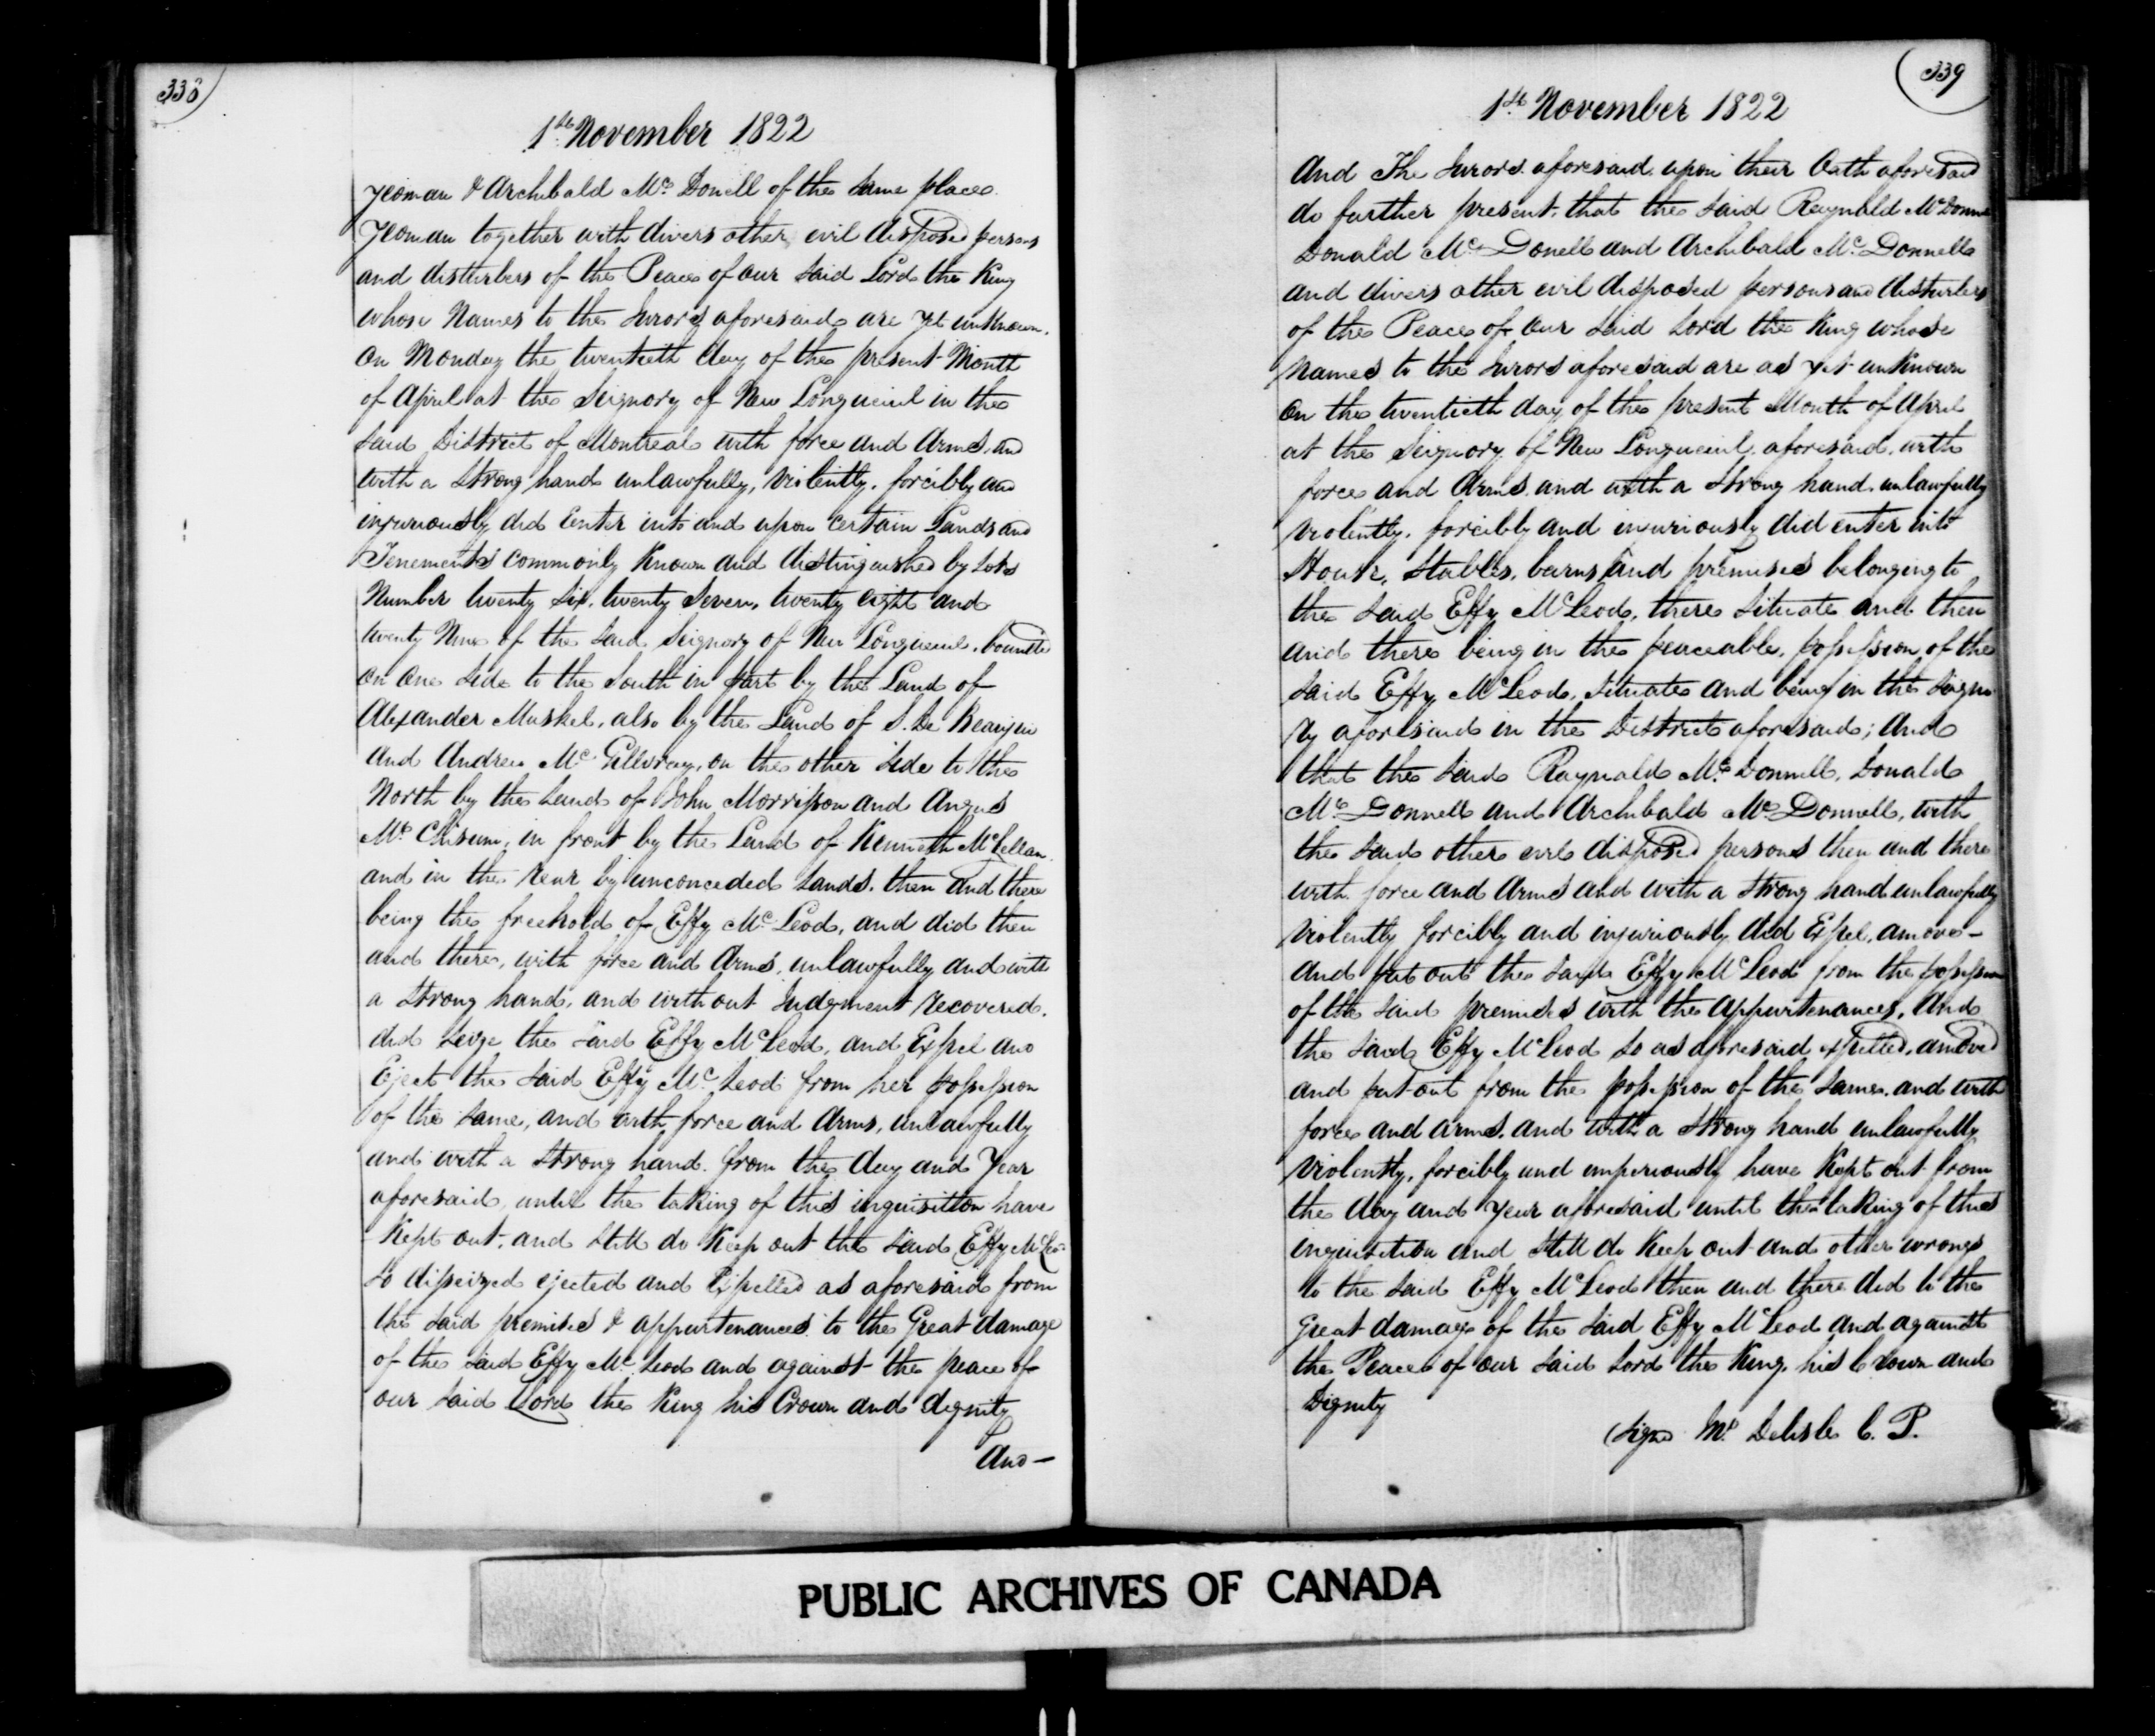 338
1st November 1822
yeoman & Archibald Mc Donell of the same place
Yeoman together with divers other evil disposed persons
and disturbers of the Peace of our Said Lord the King
whose Names to the Jurors aforesaid are yet unknown.
on Monday the twentieth day of the present Month
of April at the Seignory of New Longueuil in the
said District of Montreal with force and Arms, and
with a Strong hand unlawfully, violently, forcibly and
injuriously did Enter into and upon certain Lands and
Tenements commonly Known and distinguished by Lots
Number twenty Six, twenty Seven, twenty eight and
twenty Nine of the said Seignory of New Longueuil, bounded
on one side to the South in part by the Land of
Alexander Muskel, also by the Land of S. De Beaujeu
and Andrew Mc Gillvray, on the other Side to the
North by the Lands of John Morrisson and Angus
Mc Chisum, in front by the Land of Kenneth McLellan
and in the rear by unconceded Lands. then and there
being the freehold of Effy Mc Leod, and did then
and there, with force and Arms, unlawfully and with
a strong hand, and without Judgment recovered.
did seize the said Effy McLeod, and Expel and
Eject the Said Effy Mc Leod from her possession
of the same, and with force and Arms, unlawfully
and with a strong hand. from the day and Year
aforesaid, until the taking of this inquisition have
Kept out, and still do Keep out the said Effy McLeo
so disseized ejected and Expelled as aforesaid from
the said premises & appurtenances to the Great damage
of the said Effy Mc Leod and against the peace of
our said Lord the King his Crown and dignity
And —
339
1st November 1822
And The Jurors aforesaid, upon their Oath aforesaid
do further present, that the said Raynald McDonne
Donald Mc Donell and Archibald Mc Donnell
and divers other evil disposed persons and disturbers
of the Peace of our said Lord the King whose
names to the Jurors aforesaid are as yet unknown
on the twentieth day of the present Month of April
at the Seignory of New Longueuil, aforesaid, with
force and Arms, and with a strong hand, unlawfully
violently, forcibly and injuriously did enter into
House, Stables, barns and premises belonging to
the said Effy McLeod, there situate and then
and there being in the peaceable, possession of the
said Effy McLeod, situate and being in the Seigno
ry aforesaid in the District aforesaid; and
that the said Raynald Mc Donnell, Donald
Mc Donnell and Archibald Mc Donnell, with
the said other evil disposed persons then and there
with force and Arms and with a strong hand unlawfully
violently forcibly and injuriously did Expel, amove —
and put out the said Effy McLeod from the possession
of the said premises with the appurtenances, and
the said Effy McLeod so as aforesaid expelled, amoved
and put out from the possession of the same, and with
force and arms, and with a strong hand unlawfully
violently, forcibly and imperiously have Kept out from
the day and year aforesaid until the taking of this
inquisition and still do Keep out and other wrongs
to the said Effy McLeod then and there did to the
great damage of the said Effy McLeod and against
the Peace of our said Lord the King, his Crown and
Dignity
(Signed Mr Delisle C. P.
PUBLIC ARCHIVES OF CANADA